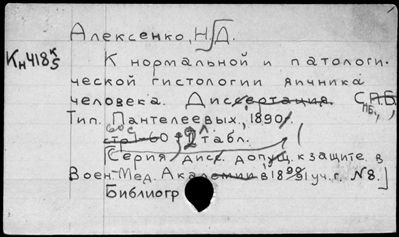 Алексенко, Н. Д.
Кн418 к/5
К нормальной и патологи-
ческой гистологии яичника
человека. Диссертация. С.П.Б.,
Тип. Пантелеевых, 1890.
стр 1-60, 2 табл.
[Серия дисс. допущ. к защите в
Воен-Мед. Академии в 1890/91 уч. г. №8.]
Библиогр